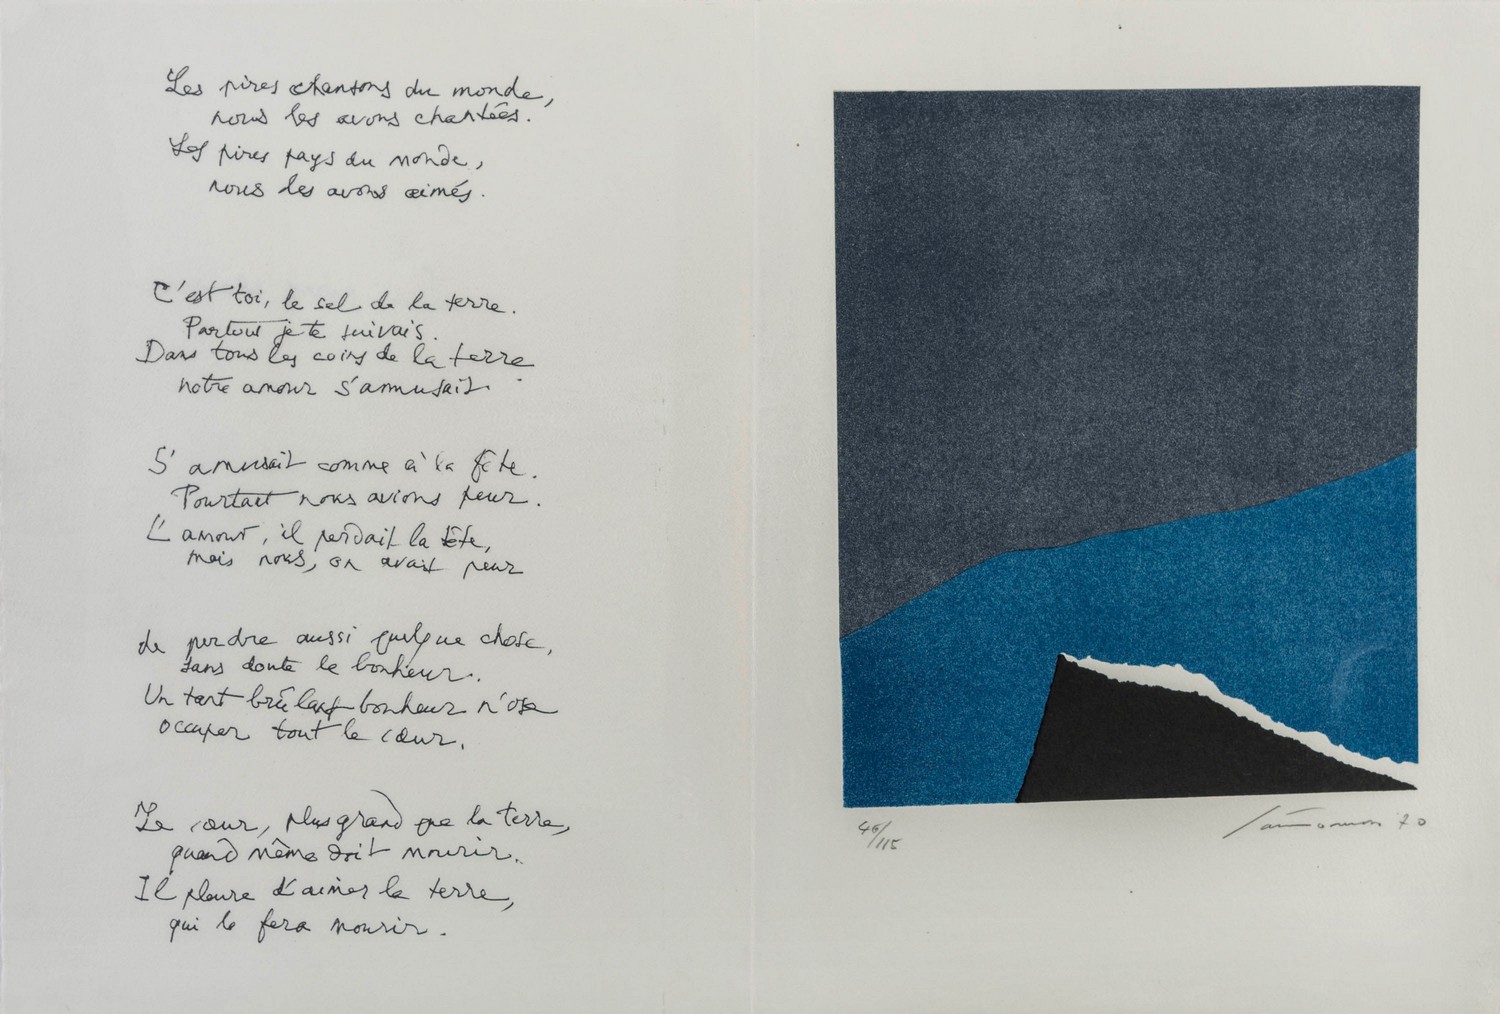 Les pires chansons du monde,
nous les avons chantées.
Les pires pays du monde,
nous les avons aimés.
C'est toi, le sel de la terre.
Partout je te suivais.
Dans tous les coins de la terre
notre amour s'amusait.
S'amusait comme à la fête.
Pourtant nous avions peur.
L'amour, il perdait la tête,
mais nous, on avait peur
de perdre aussi quelque chose,
sans doute le bonheur.
Un tant brûlant bonheur n'ose
occuper tout le cœur.
Le cœur, plus grand que la terre,
quand même doit mourir.
Il pleure d'aimer la terre,
qui le fera mourir.
46/115
70